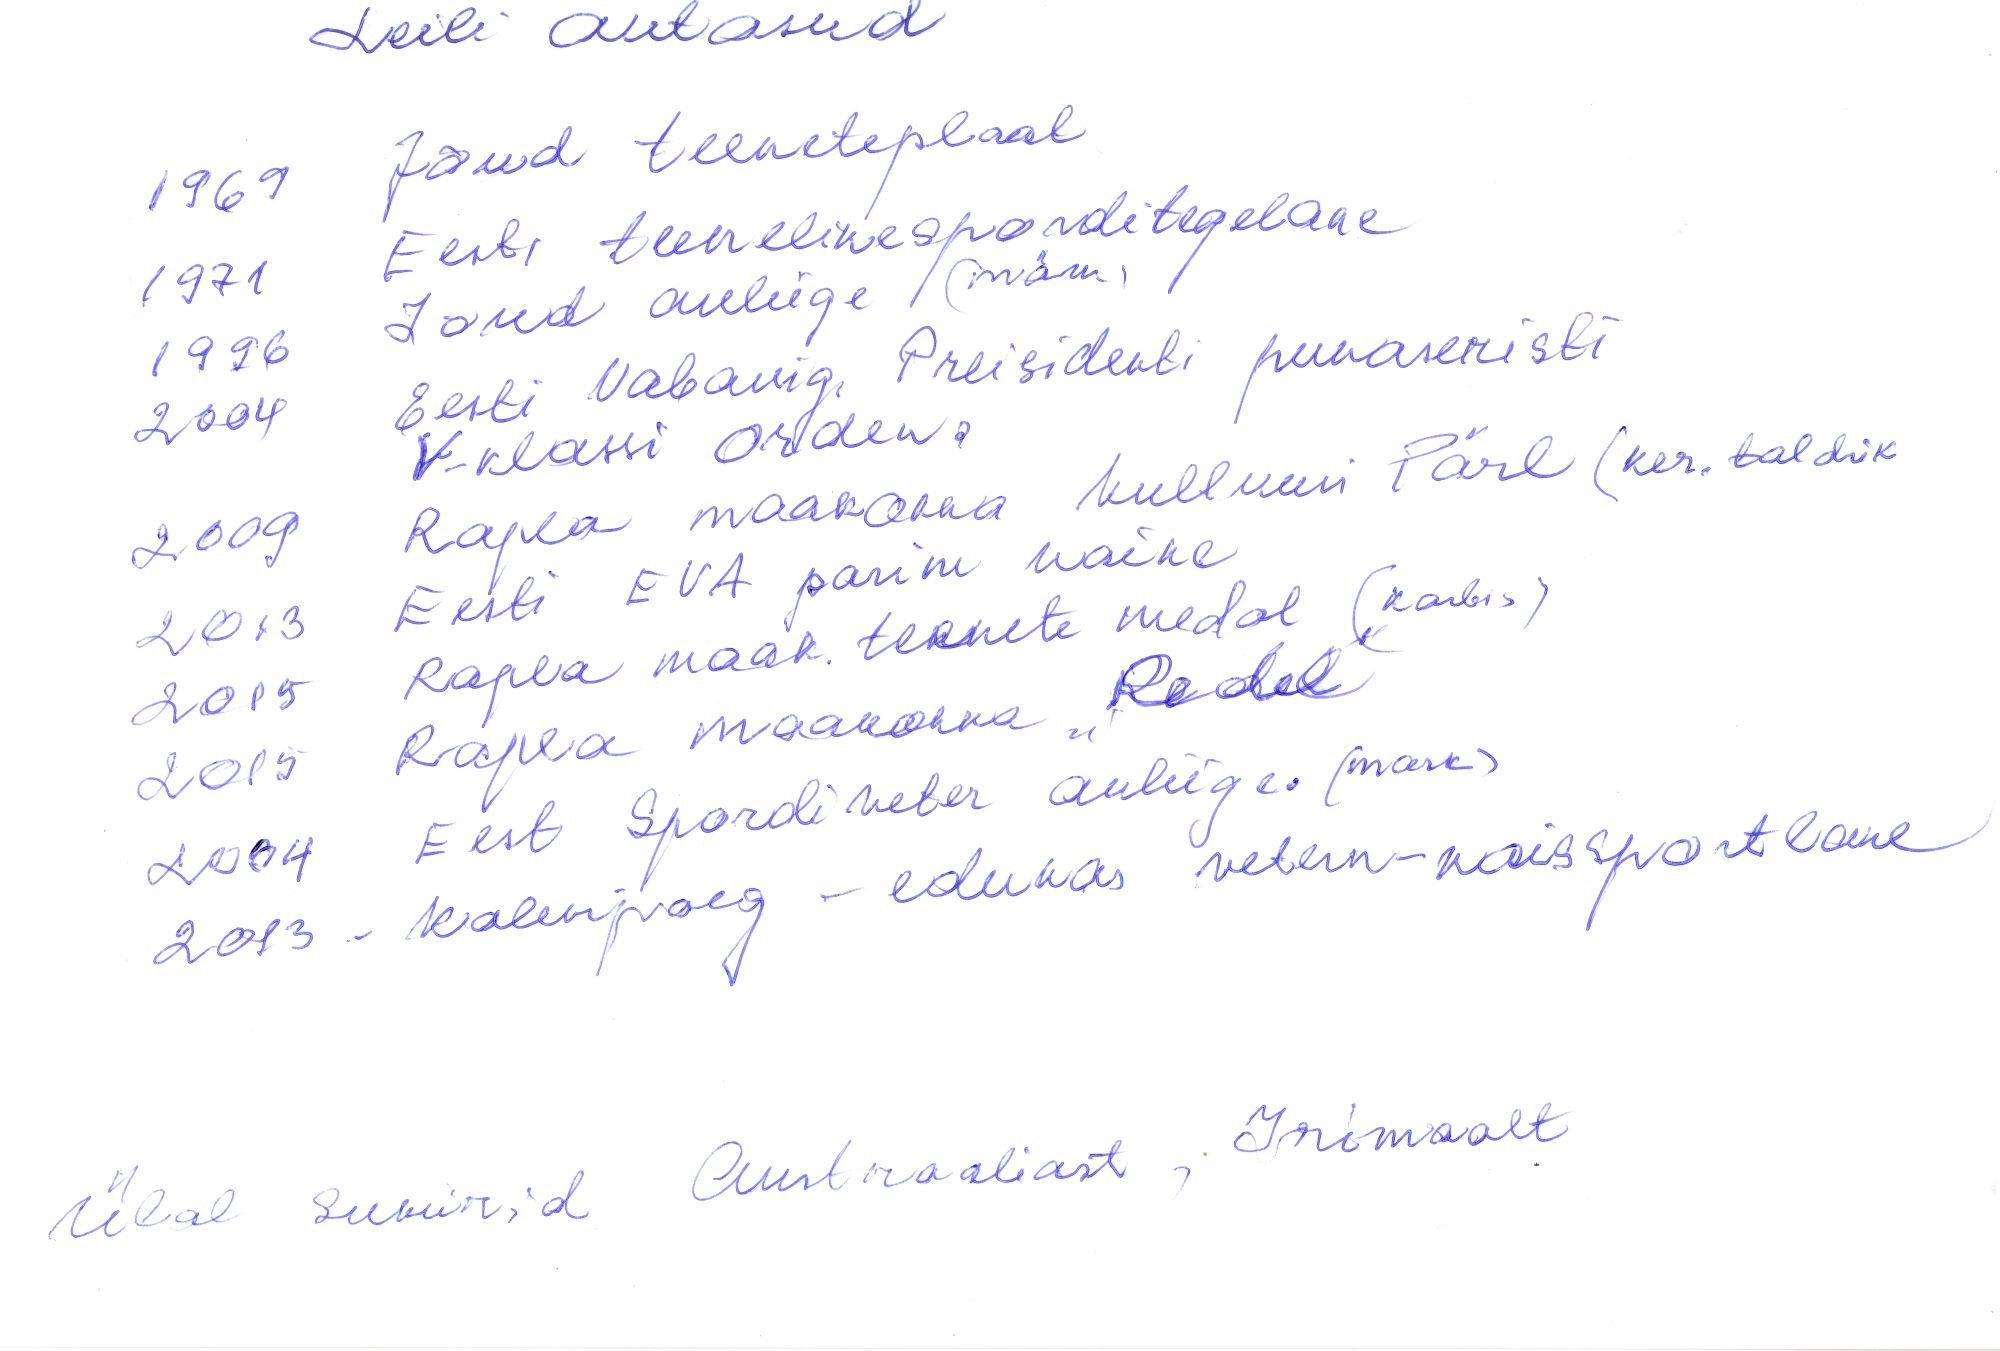 Leili autasud
1969 Jõud teeneteplaat
1971 Eesti teenelinesporditegelane
1996 Jõud auliige (märk)
2004 Eesti Vabariig. Preisidenti punaseristi
V-klassi orden.
2009 Rapla maakonna kulluuri Pärl (ker. taldrik
2013 Eesti EVA parim naine
2015 Rapla maak. teenete medal (karbis)
2015 Rapla maakonna „Redel"
2004 Eest Spordiveter auliige. (mark)
2013 - Kalevipoeg - edukas vetern-naissportlane
Ülal suvinirid Austraaliast, Irimaalt